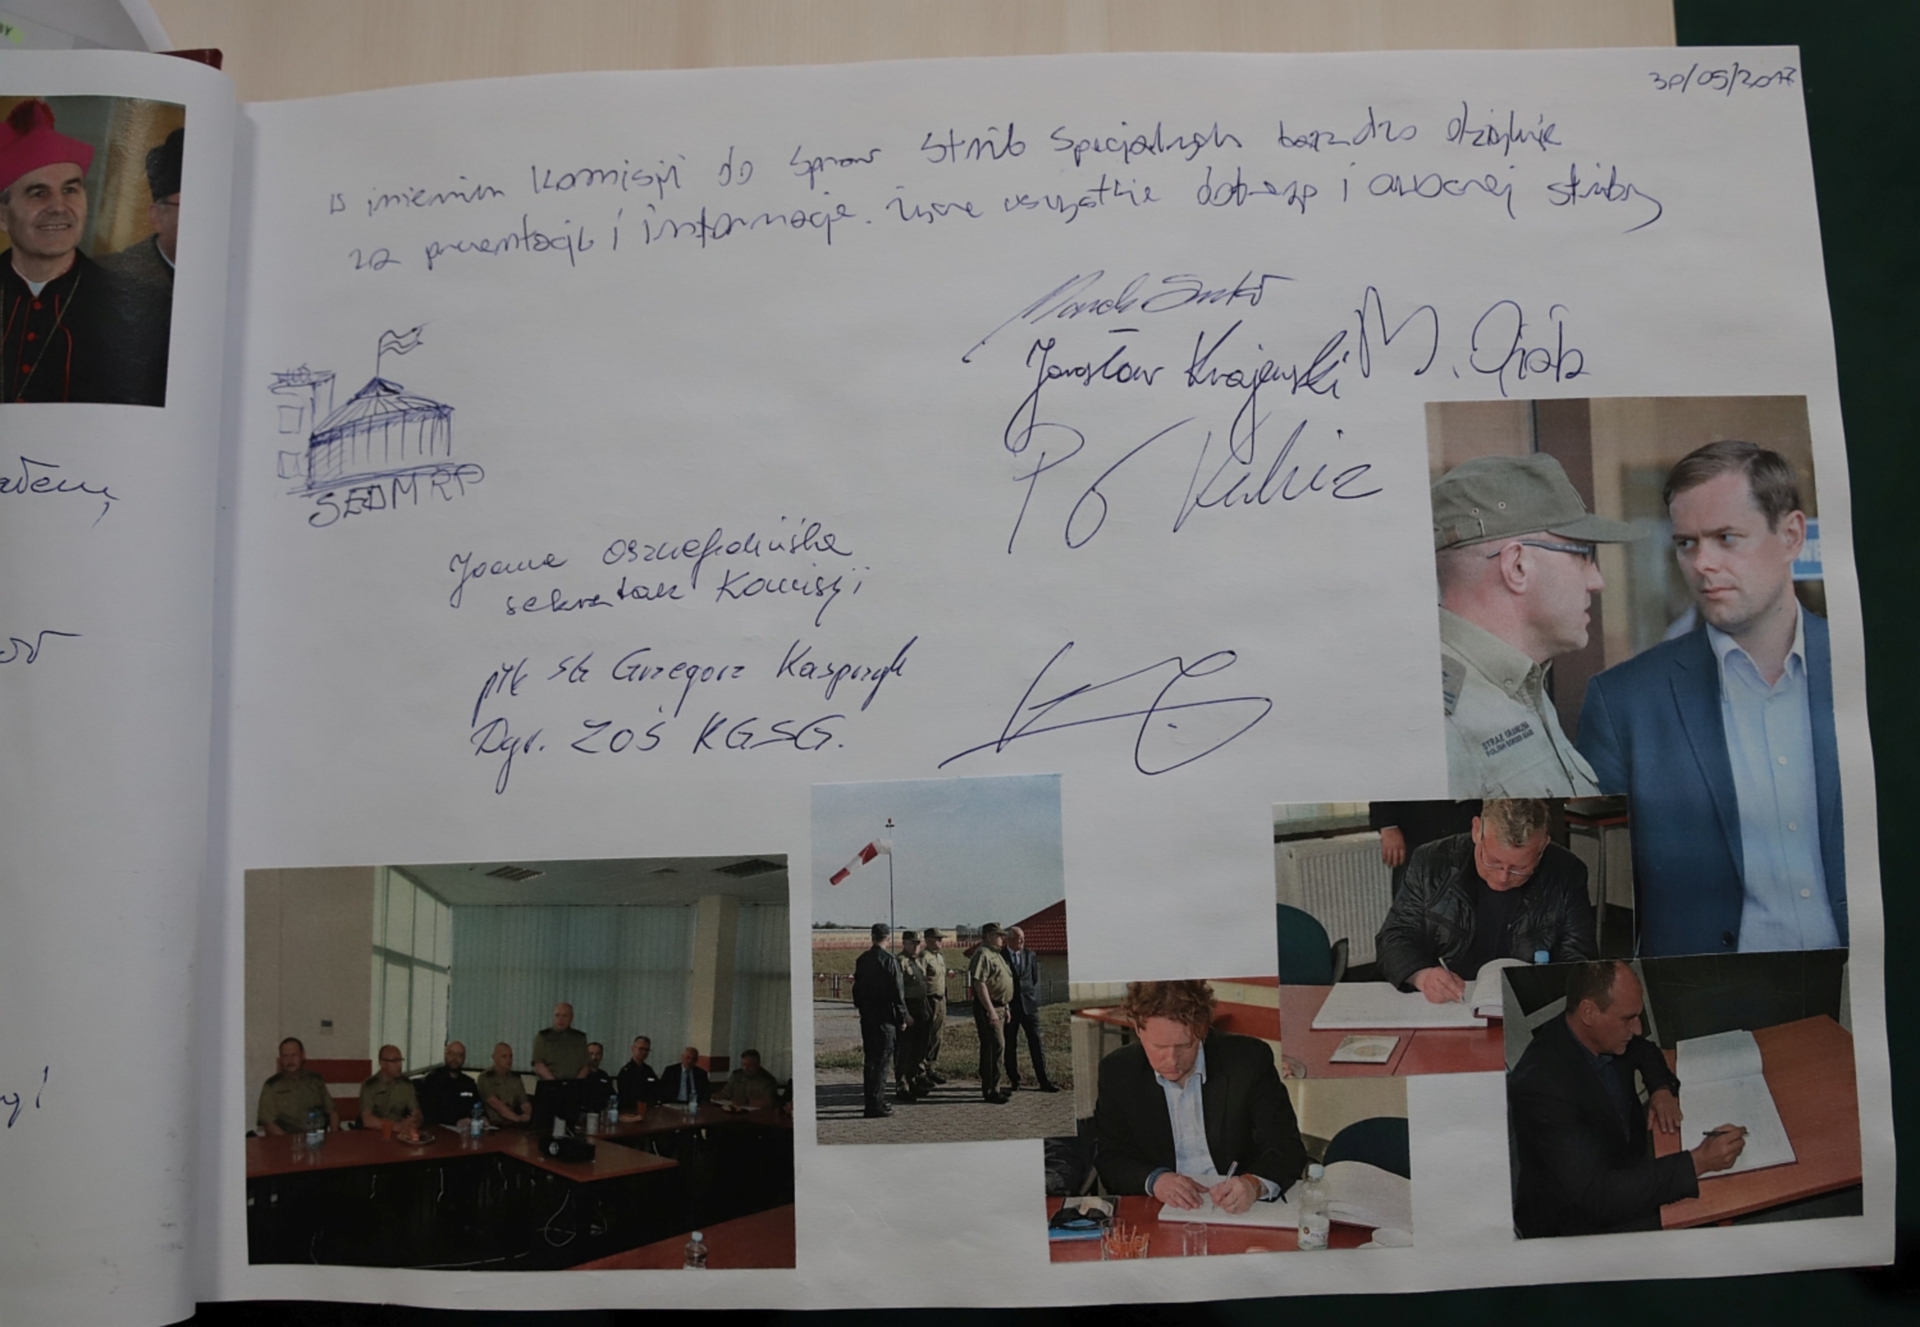 30/05/2017
W imieniu Komisji do Spraw Służb Specjalnych bardzo dziękuję
za prezentację i informacje. Życzę wszystkie dobrego i owocnej służby
Marek
Jarosław Krajewski M. Gráb
P Kukiz
SEJM RP
Joanna
sekretarz Komisji
płk SG Grzegorz Kasprzyk
Dyr. ZOŚ KGSG.
STRAŻ GRANICZNA
POLISH BORDER GUARD